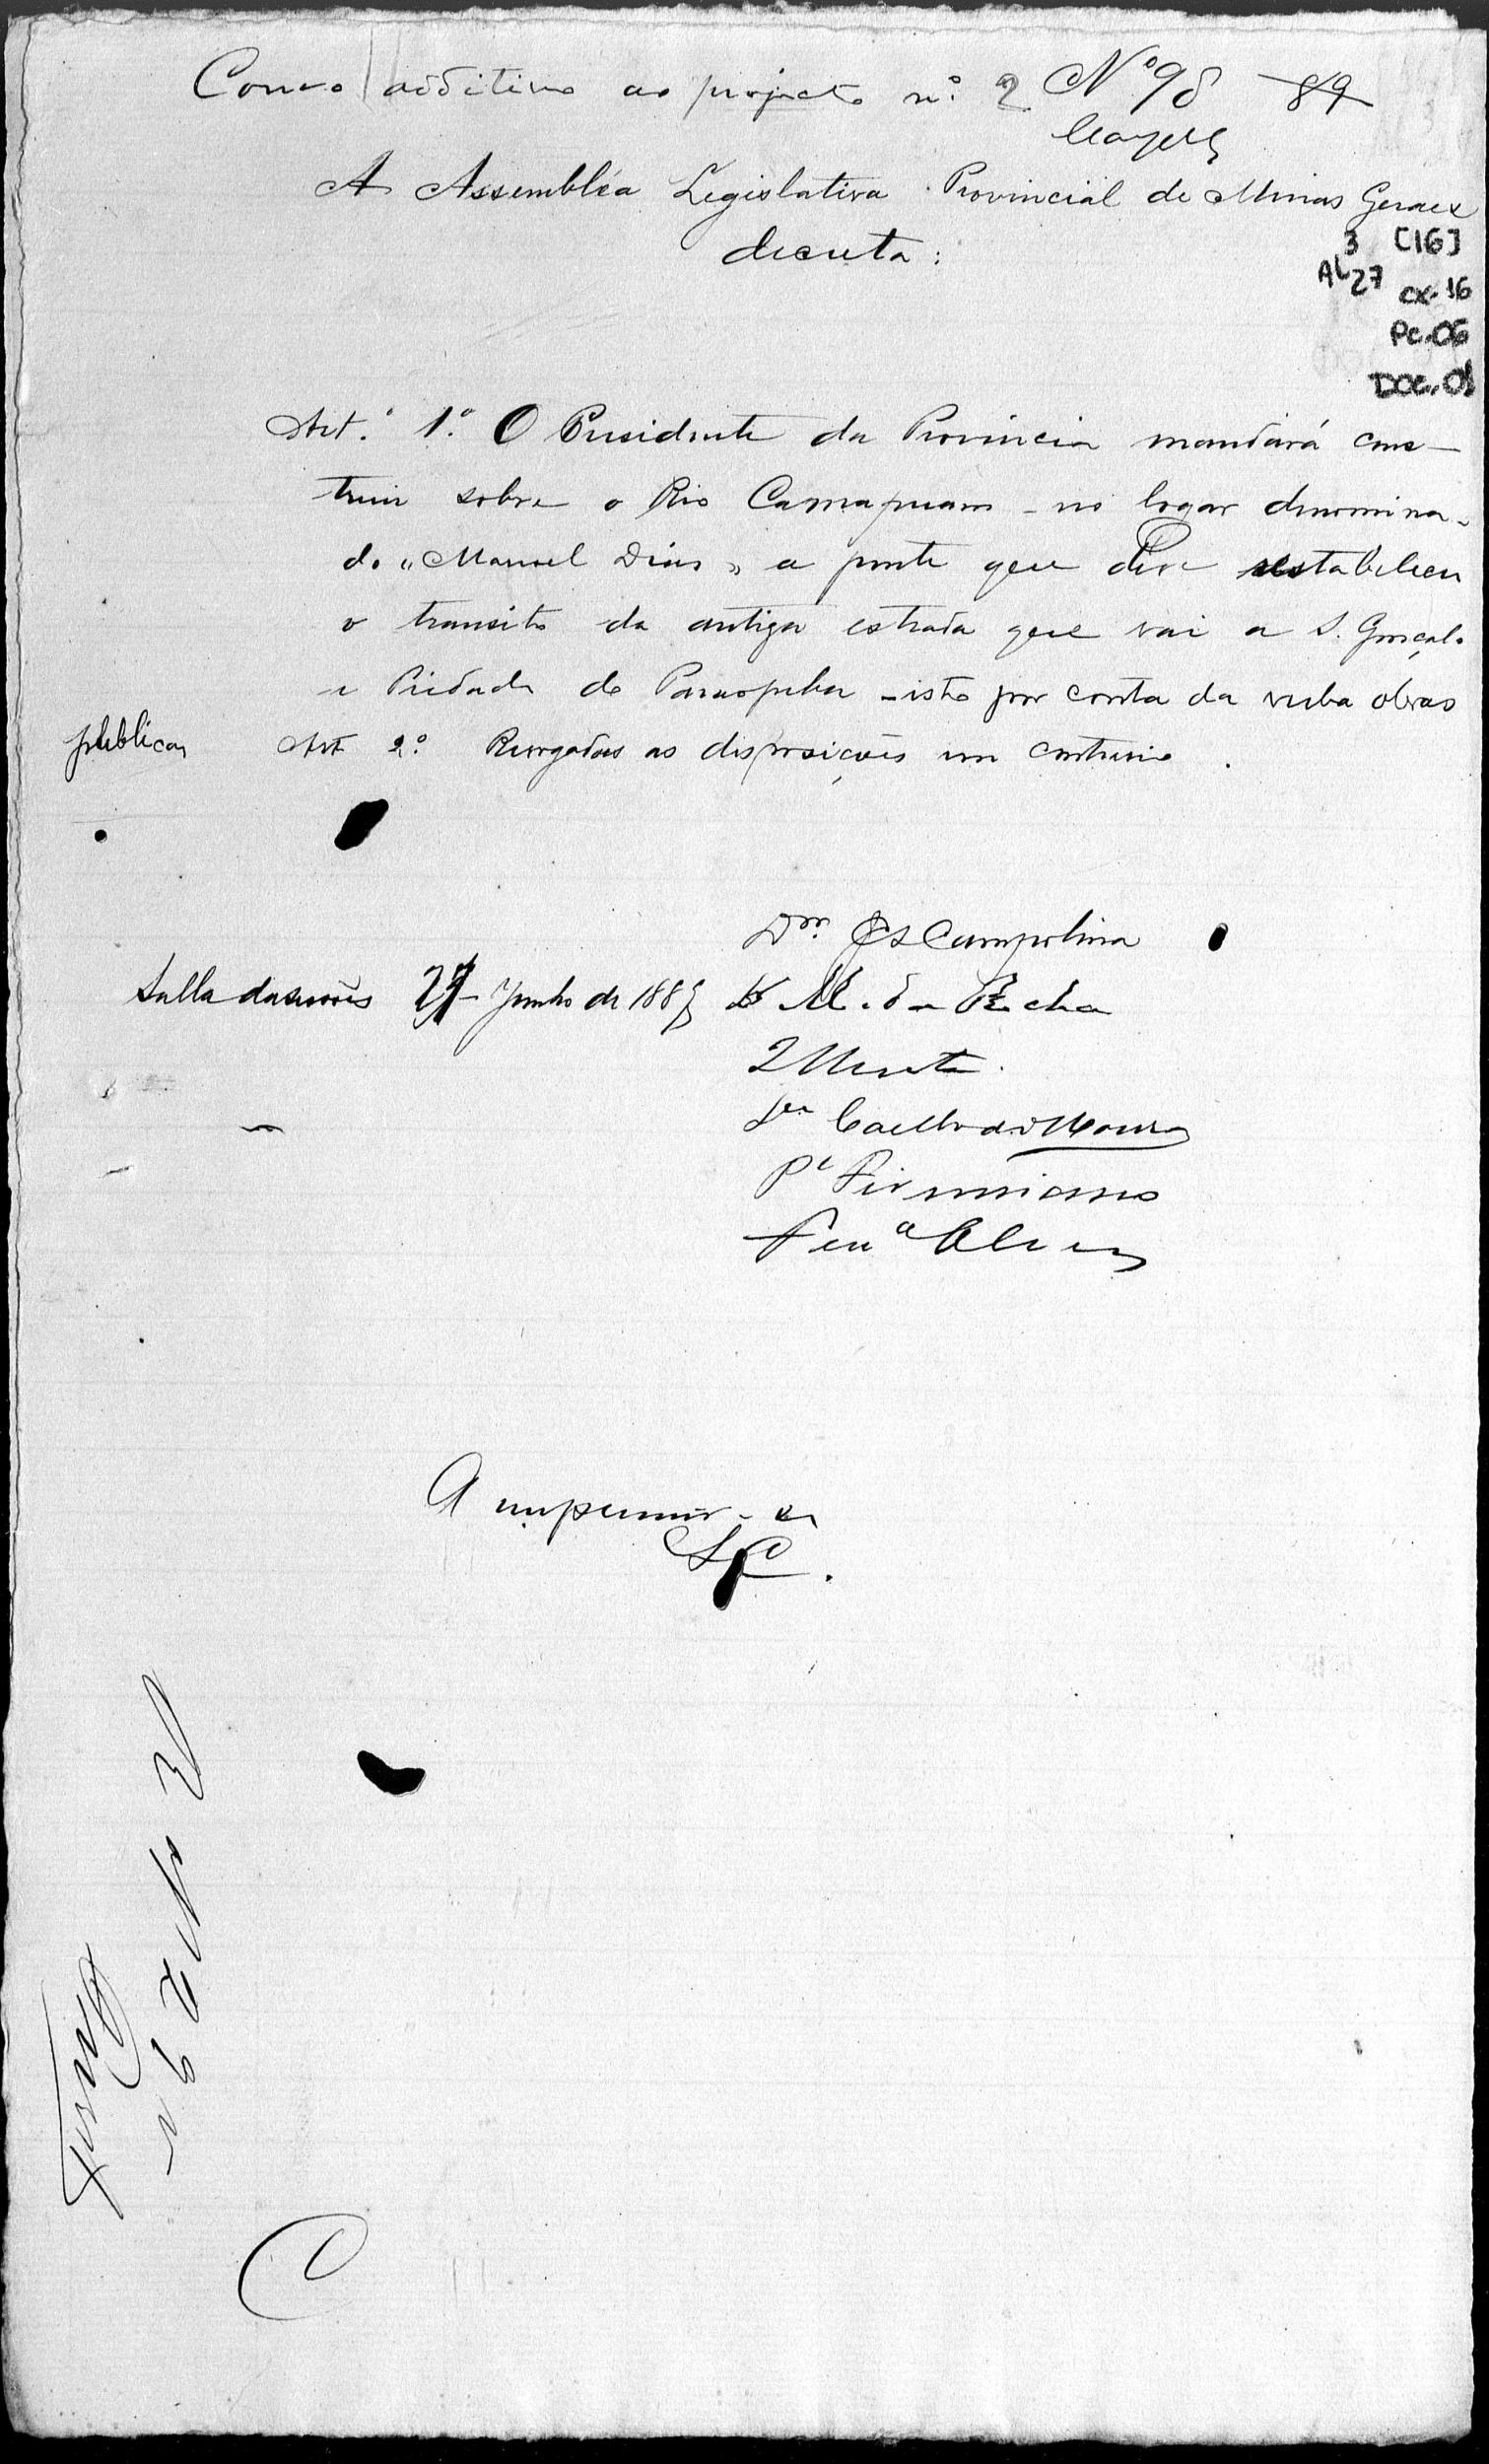 Como additivo ao projecto nº 2 Nº 98 89
A Assembléa Legislativa Provincial de Minas Geraes
decreta:
3 [16]
AL 27 cx. 16
Pc. 06
DOC. 01
Art.º 1.º O Presidente da Provincia mandará cons-
truir sobre o Rio Camapuam - no logar denomina-
do "Manoel Dias" a ponte que deve restabelecer
o transito da antiga estrada que vai a S. Gonçalo
e Piedade do Paraopeba - isto por conta da verba obras
publicas Art 2º Revogadas as disposições em contrario.
Dor. Campolina
Salla das sessões 27 Junho de 188 M. da Rocha
Pe Firmiano
Ferra Alves
A imprimir-se